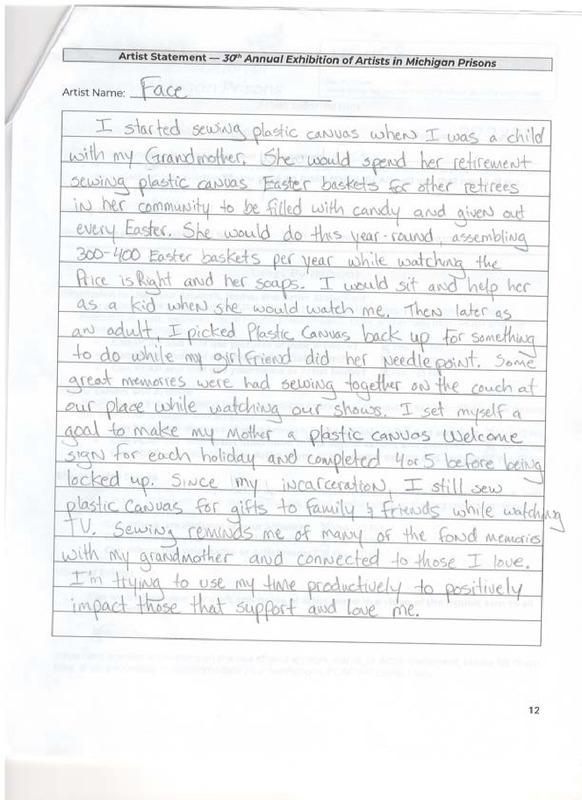 Artist Statement — 30th Annual Exhibition of Artists in Michigan Prisons
Artist Name: Face
I started sewing plastic canvas when I was a child
with my Grandmother. She would spend her retirement
sewing plastic canvas Easter baskets for other retirees
in her community to be filled with candy and given out
every Easter. She would do this year-round, assembling
300-400 Easter baskets per year while watching the
Price is Right and her soaps. I would sit and help her
as a kid when she would watch me. Then later as
an adult, I picked Plastic Canvas back up for something
to do while my girlfriend did her Needle point. Some
great memories were had sewing together on the couch at
our place while watching our shows. I set myself a
goal to make my Mother a plastic canvas Welcome
sign for each holiday and completed 4 or 5 before being
locked up. Since my incarceration, I still sew
plastic Canvas for gifts to family & friends while watching
TV. Sewing reminds me of many of the fond memories
with my grandmother and connected to those I love.
I'm trying to use my time productively to positively
impact those that support and love me.
12